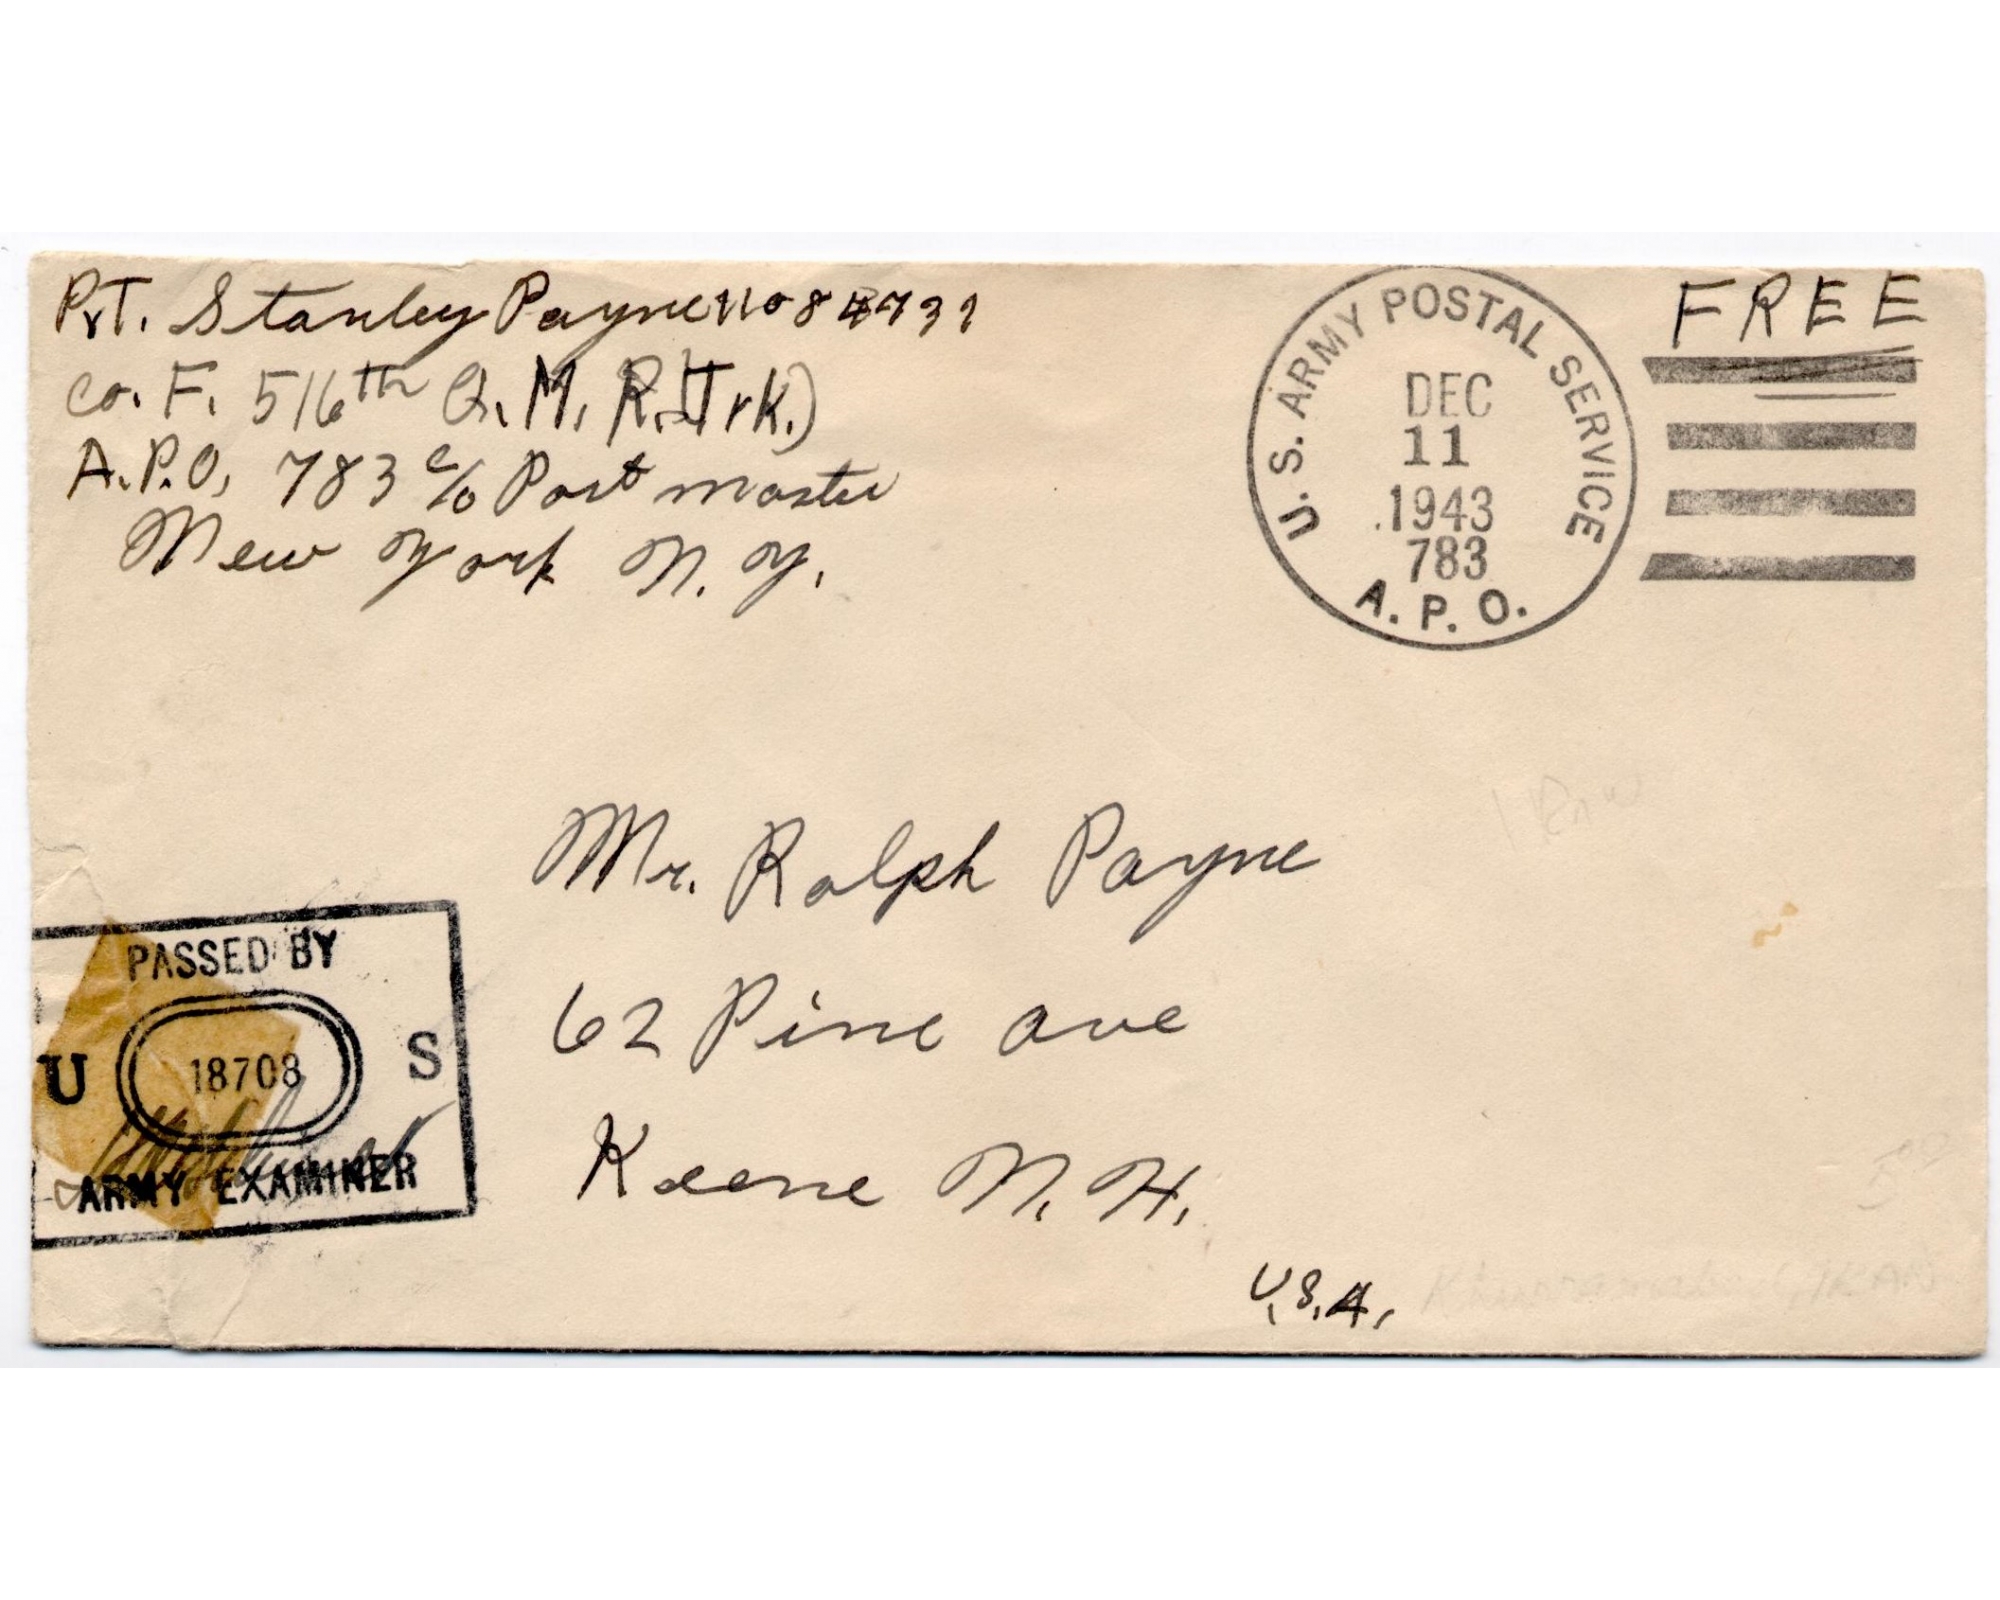 Pvt. Stanley Payne 11084737
Co. F. 516th Q.M. R. (Trk.)
A.P.O. 783 c/o Post master
New York N.Y.
U.S. ARMY POSTAL SERVICE
DEC
11
1943
783
A.P.O.
FREE
Mr. Ralph Payne
62 Pine ave
Keene N.H.
U.S.A.
PASSED BY
U 18708 S
ARMY EXAMINER
500
IRAN